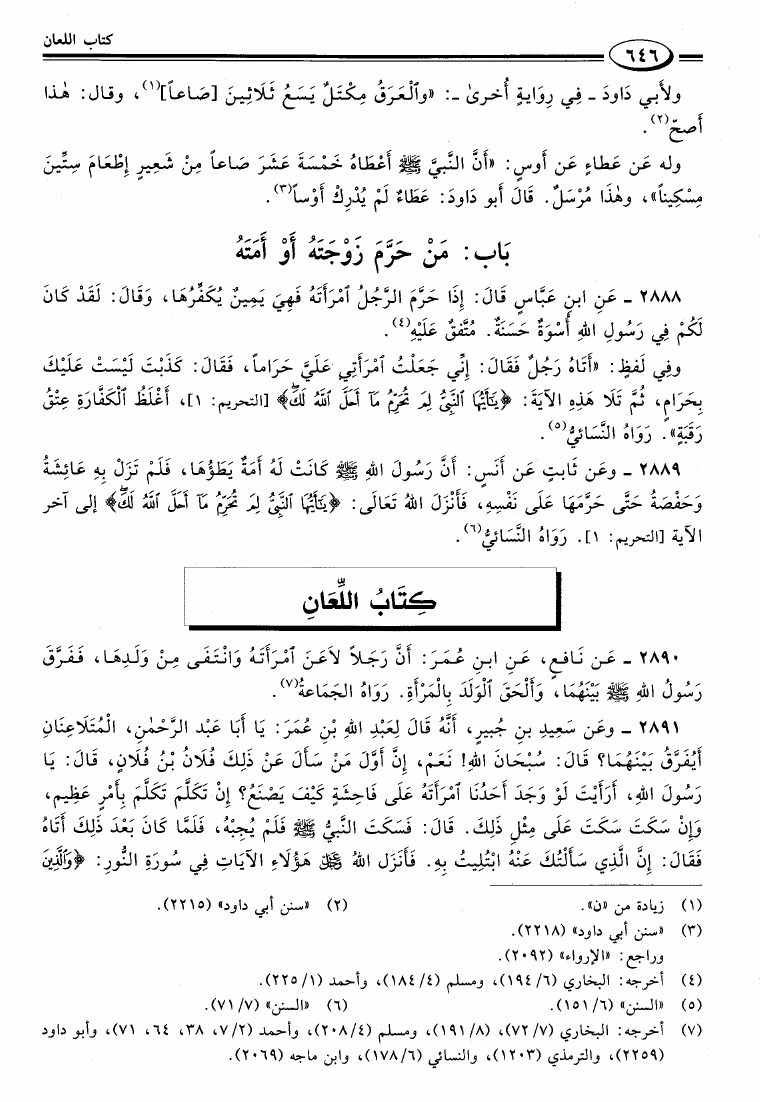 كتاب اللعان
٦٤٦
ولأبي دَاودَ ـ فِي رِوَايةٍ أُخرىٰ ـ: «وٱلْعَرَقُ مِكْتَلٌ يَسَعُ ثَلَاثِينَ [صَاعاً]⁽¹⁾، وقال: هٰذا
أَصحّ⁽²⁾.
وله عَن عَطاءٍ عَن أَوسٍ: «أَنَّ النَّبيَّ ﷺ أَعْطَاهُ خَمْسَةَ عَشَرَ صَاعاً مِنْ شَعِيرٍ إطْعَامَ سِتِّينَ
مِسْكِيناً»، وهٰذَا مُرْسَلٌ. قَالَ أبو دَاودَ: عَطَاءٌ لَمْ يُدْرِكْ أَوْساً⁽³⁾.
بَاب: مَنْ حَرَّمَ زَوْجَتَهُ أَوْ أَمَتَهُ
٢٨٨٨ ـ عَنِ ابنِ عَبَّاسٍ قَالَ: إِذَا حَرَّمَ الرَّجُلُ ٱمْرَأَتَهُ فَهِيَ يَمِينٌ يُكَفِّرُهَا، وَقَالَ: لَقَدْ كَانَ
لَكُمْ فِي رَسُولِ اللهِ أُسْوَةٌ حَسَنَةٌ. مُتَّفقٌ عَلَيْهِ⁽⁴⁾.
وفِي لَفظٍ: «أَتَاهُ رَجُلٌ فَقَالَ: إِنِّي جَعَلْتُ ٱمْرَأَتِي عَلَيَّ حَرَاماً، فَقَالَ: كَذَبْتَ لَيْسَتْ عَلَيْكَ
بِحَرَامٍ، ثُمَّ تَلَا هَذِهِ الآيَةَ: ﴿يَٰٓأَيُّهَا ٱلنَّبِيُّ لِمَ تُحَرِّمُ مَآ أَحَلَّ ٱللَّهُ لَكَۖ﴾ [التحريم: ١]، أَغْلَظُ ٱلْكَفَّارَةِ عِتْقُ
رَقَبَةٍ». رَوَاهُ النَّسَائيُّ⁽⁵⁾.
٢٨٨٩ ـ وعَن ثَابتٍ عَن أَنَسٍ: أَنَّ رَسُولَ اللهِ ﷺ كَانَتْ لَهُ أَمَةٌ يَطَؤُهَا، فَلَمْ تَزَلْ بِهِ عَائِشَةُ
وَحَفْصَةُ حَتَّى حَرَّمَهَا عَلَى نَفْسِهِ، فَأَنْزَلَ اللهُ تَعَالَى: ﴿يَٰٓأَيُّهَا ٱلنَّبِيُّ لِمَ تُحَرِّمُ مَآ أَحَلَّ ٱللَّهُ لَكَۖ﴾ إلى آخر
الآية [التحريم: ١]. رَوَاهُ النَّسَائيُّ⁽⁶⁾.
كِتَابُ اللِّعَانِ
٢٨٩٠ ـ عَن نَافعٍ، عَنِ ابنِ عُمَرَ: أَنَّ رَجُلاً لَاعَنَ ٱمْرَأَتَهُ وَانْتَفَى مِنْ وَلَدِهَا، فَفَرَّقَ
رَسُولُ اللهِ ﷺ بَيْنَهُمَا، وَأَلْحَقَ ٱلْوَلَدَ بِالْمَرْأَةِ. رَوَاهُ الجَمَاعةُ⁽⁷⁾.
٢٨٩١ ـ وعَن سَعِيدِ بنِ جُبيرٍ، أَنَّهُ قَالَ لِعَبْدِ اللهِ بْنِ عُمَرَ: يَا أَبَا عَبْد الرَّحْمٰنِ، الْمُتَلَاعِنَانِ
أَيُفَرَّقُ بَيْنَهُمَا؟ قَالَ: سُبْحَانَ اللهِ! نَعَمْ، إِنَّ أَوَّلَ مَنْ سَأَلَ عَنْ ذَلِكَ فُلَانُ بْنُ فُلَانٍ، قَالَ: يَا
رَسُولَ اللهِ، أَرَأَيْتَ لَوْ وَجَدَ أَحَدُنَا ٱمْرَأَتَهُ عَلَى فَاحِشَةٍ كَيْفَ يَصْنَعُ؟ إِنْ تَكَلَّمَ تَكَلَّمَ بِأَمْرٍ عَظِيمٍ،
وَإِنْ سَكَتَ سَكَتَ عَلَى مِثْلِ ذَلِكَ. قَالَ: فَسَكَتَ النَّبِيُّ ﷺ فَلَمْ يُجِبْهُ، فَلَمَّا كَانَ بَعْدَ ذَلِكَ أَتَاهُ
فَقَالَ: إِنَّ الَّذِي سَأَلْتُكَ عَنْهُ ابْتُلِيتُ بِهِ. فَأَنْزَل اللهُ ﷻ هَؤُلَاءِ الآيَاتِ فِي سُورَةِ النُّورِ: ﴿وَٱلَّذِينَ
(١) زيادة من «ن». (٢) «سنن أبي داود» (٢٢١٥).
(٣) «سنن أبي داود» (٢٢١٨).
وراجع: «الإرواء» (٢٠٩٢).
(٤) أخرجه: البخاري (٦/ ١٩٤)، ومسلم (٤/ ١٨٤)، وأحمد (١/ ٢٢٥).
(٥) «السنن» (٦/ ١٥١). (٦) «السنن» (٧/ ٧١).
(٧) أخرجه: البخاري (٧/ ٧٢)، (٨/ ١٩١)، ومسلم (٤/ ٢٠٨)، وأحمد (٢/ ٧، ٣٨، ٦٤، ٧١)، وأبو داود
(٢٢٥٩)، والترمذي (١٢٠٣)، والنسائي (٦/ ١٧٨)، وابن ماجه (٢٠٦٩).